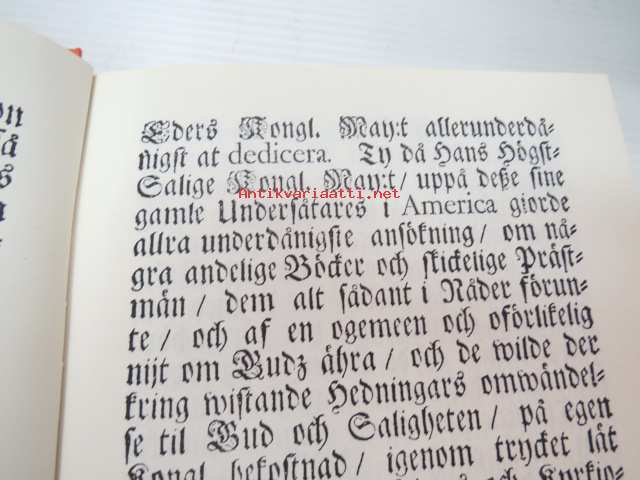 Eders Kongl. May:t allerunderdå-
nigst at dedicera. Ty då Hans Högst-
Salige Kongl. May:t/ uppå deße sine
Antikvariaatti.net
gamle Undersåtares i America giorde
allra underdånigste ansökning/ om nå-
gra andelige Böcker och skickelige Präst-
män/ dem alt sådant i Nåder förun-
te/ och af en ogemeen och oförlikelig
nijt om Gudz ähra/ och de wilde der
kring wistande Hedningars omwändel-
se til Gud och Saligheten/ på egen
Kongl. bekostnad/ igenom trycket låt